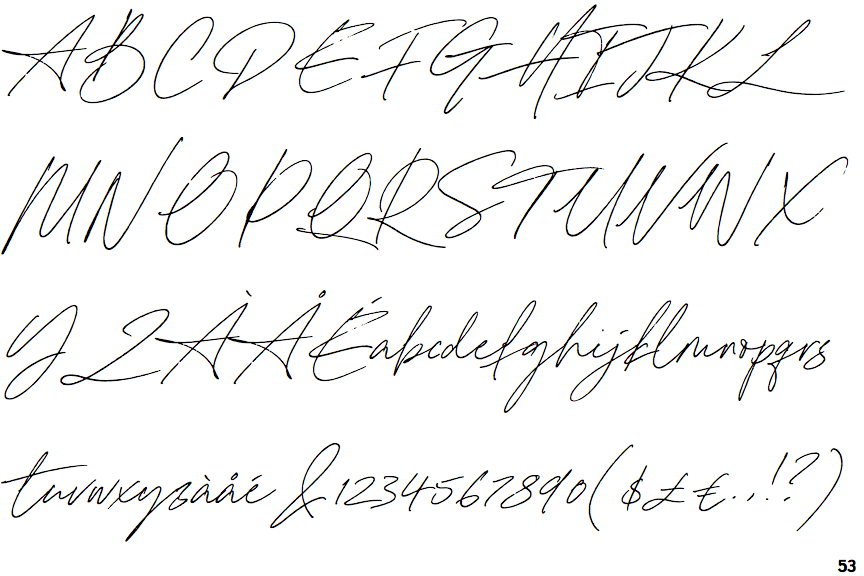 ABCDEFGHIJKL
MNOPQRSTUVWX
YZÀÅÉabcdefghijklmnopqrs
tuvwxyzàåé&1234567890($£€.,!?)
53